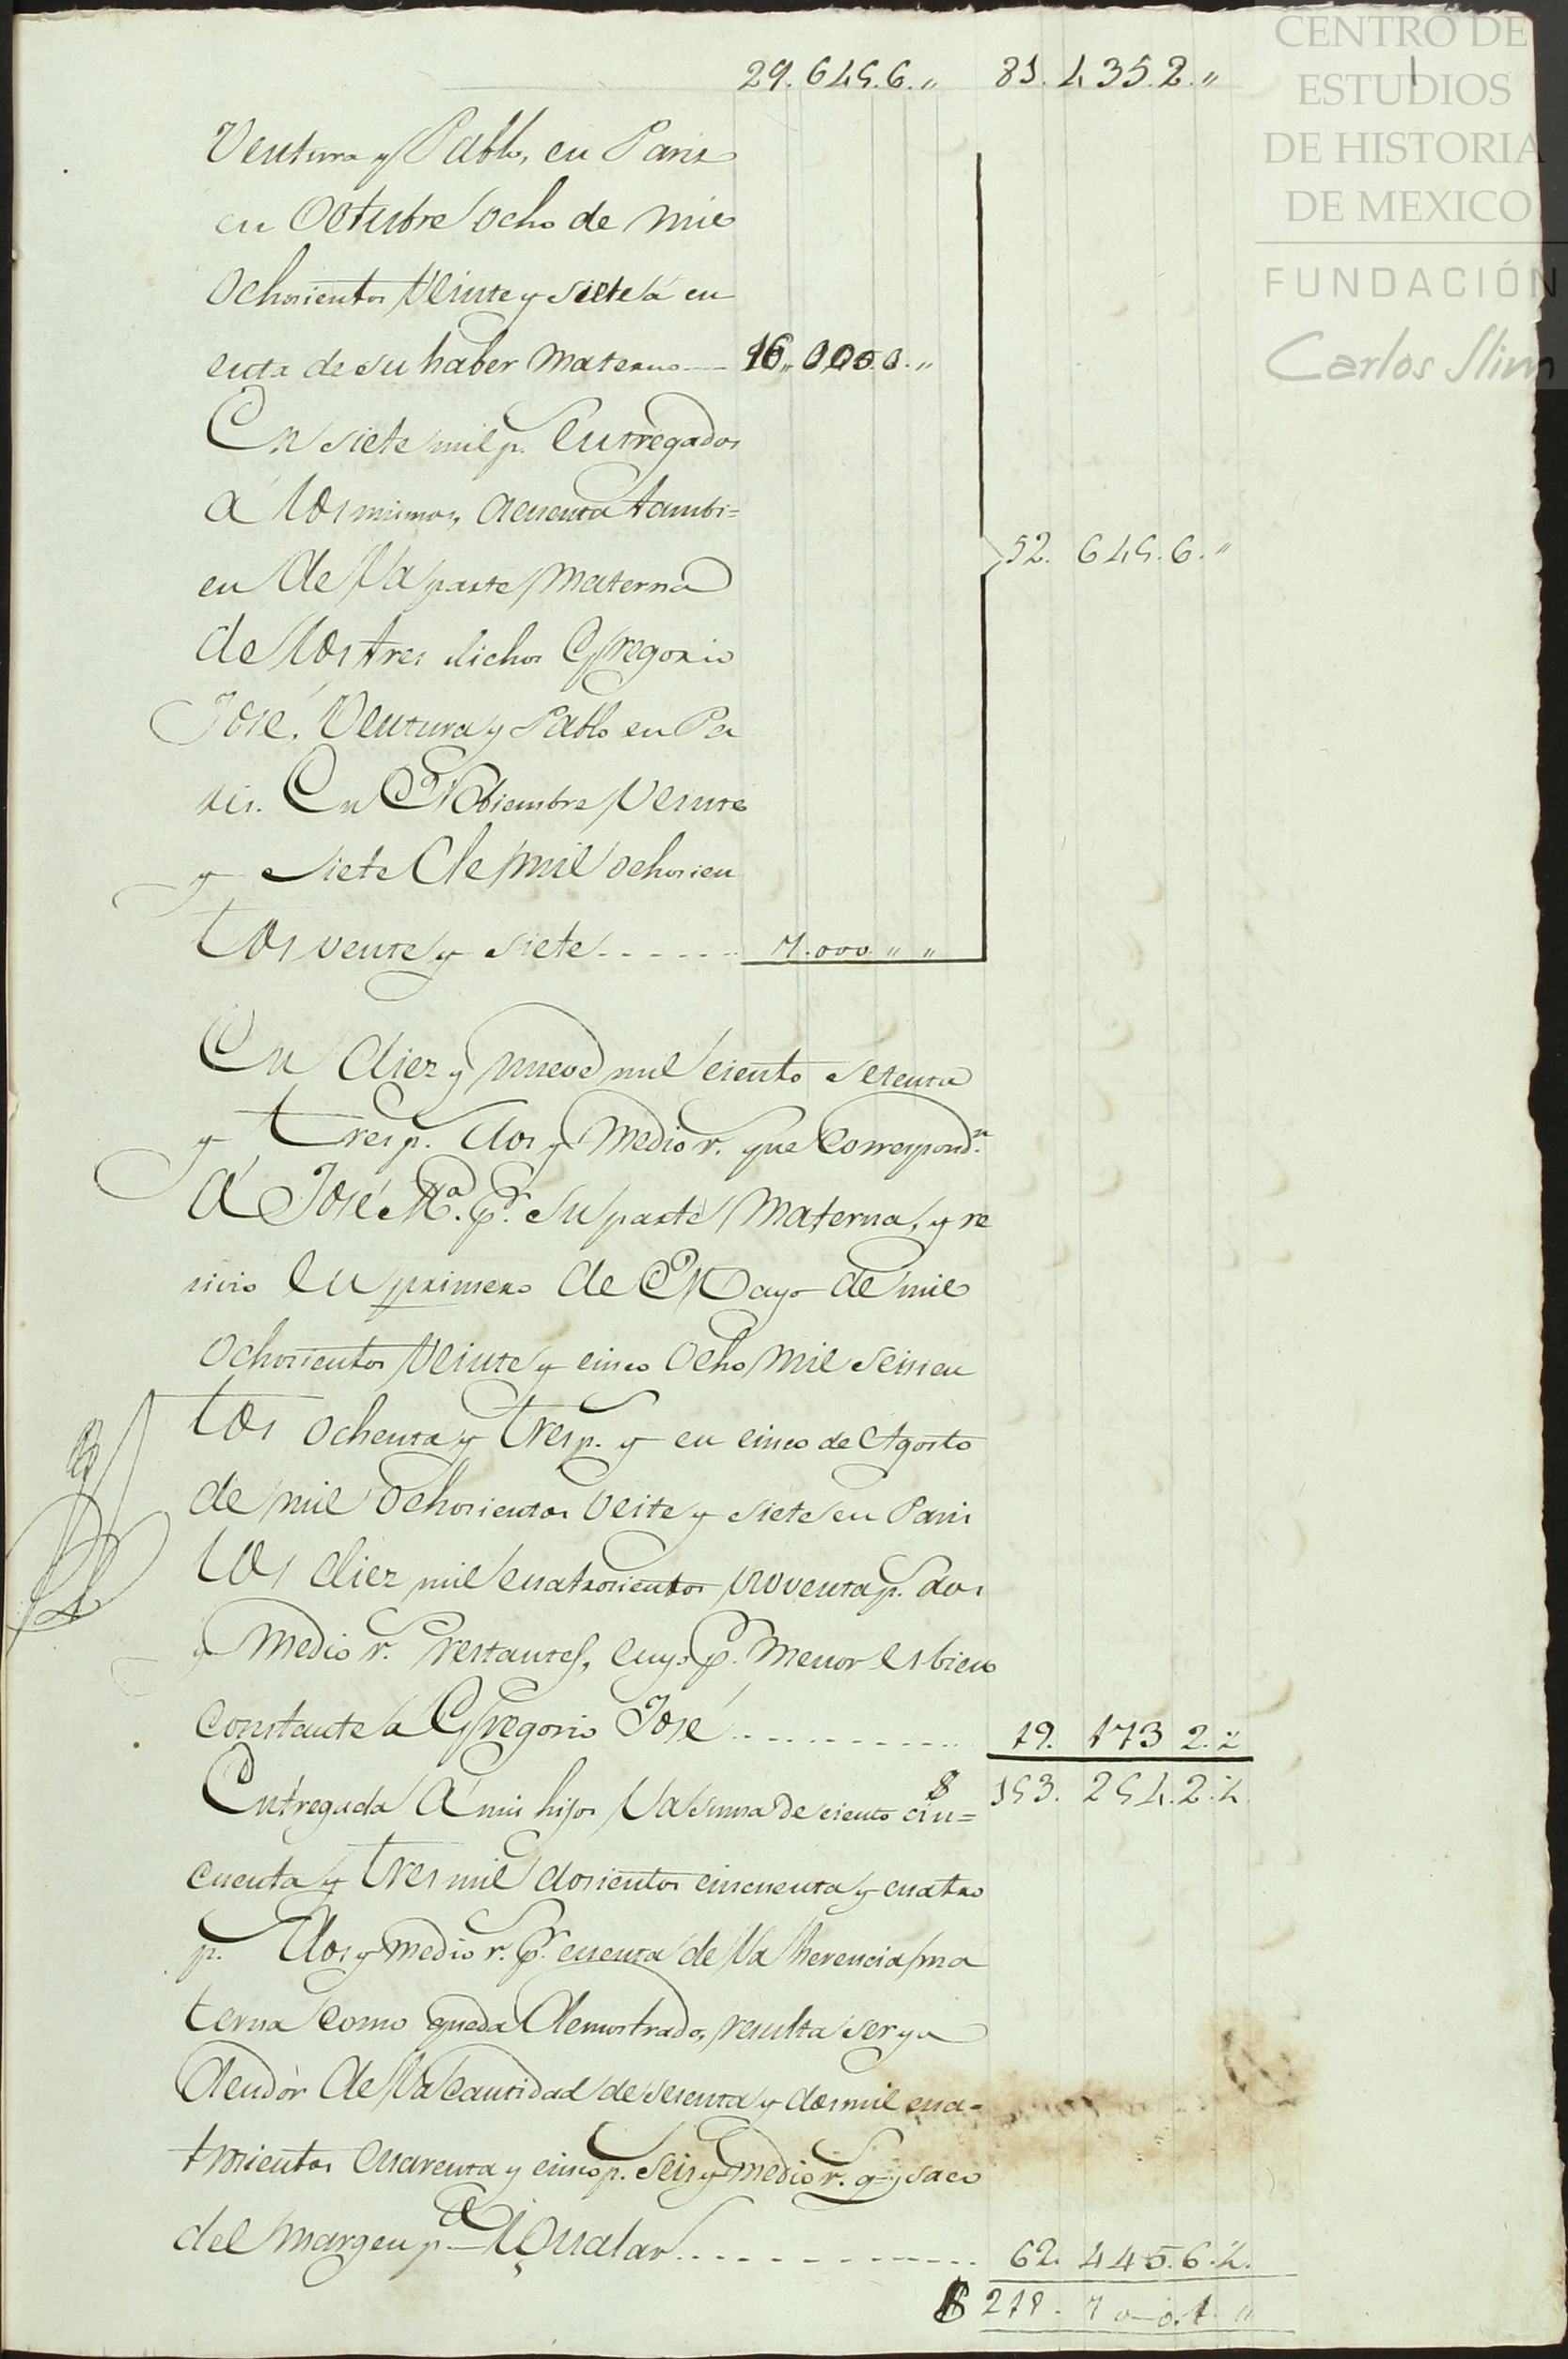 CENTRO DE
ESTUDIOS
DE HISTORIA
DE MEXICO
FUNDACIÓN
Carlos Slim
29. 645. 6. „ 81. 435. 2. „
Ventura y Pablo, en Paris
en Octubre ocho de mil
ochosientos veinte y siete á cu
enta de su haber materno 16„ 000. 0. „
En siete mil p. entregados
á los mismos, acuenta tambi=
en de la parte materna
de los tres dichos Gregorio
José, Ventura y Pablo en Pa
ris. En Nobiembre veinte
y siete de mil ochosien
tos vente y siete 7. 000 „ „
52. 645. 6. „
En diez y nueve mil ciento setenta
y tres p. dos y medio r. que correspond.n
á José M.a p.r su parte materna, y re
sivio en primero de Mayo de mil
ochosientos veinte y cinco ocho mil seiscien
tos ochenta y tres p. y en cinco de Agosto
de mil ochosientos veite y siete en Paris
los diez mil cuatrosientos noventa p. dos
y medio r. restantes, cuyo p. menor es bien
constante a Gregorio José 19. 173 2. ½
Entregada á mis hijos la suma de ciento cin= $ 153. 254. 2. ½
cuenta y tres mil dosientos cincuenta y cuatro
p. dos y medio r. p.r cuenta de la herencia ma
terna como queda demostrado, resulta ser yo
deudór de la cantidad de sesenta y dos mil cua=
trosientos cuarenta y cinco p. seis y medio r. q.e saco
del margen p.a iqualar 62. 445. 6. ½
$ 218. 700. 1. „